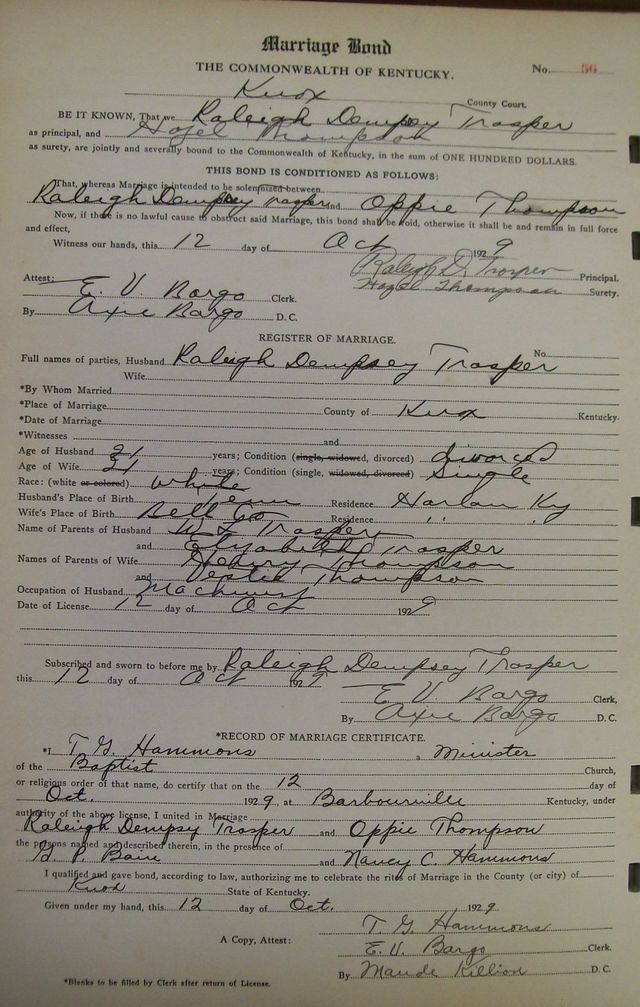 Marriage Bond
THE COMMONWEALTH OF KENTUCKY. No. 56
Knox County Court.
BE IT KNOWN, That we Raleigh Dempsey Trosper
as principal, and Hazel Thompson
as surety, are jointly and severally bound to the Commonwealth of Kentucky, in the sum of ONE HUNDRED DOLLARS.
THIS BOND IS CONDITIONED AS FOLLOWS:
That, whereas Marriage is intended to be solemnized between
Raleigh Dempsey Trosper and Oppie Thompson
Now, if there is no lawful cause to obstruct said Marriage, this bond shall be void, otherwise it shall be and remain in full force
and effect,
Witness our hands, this 12 day of Oct 1929
Raleigh D. Trosper Principal.
Attest: Hazel Thompson Surety.
E. V. Bargo Clerk.
By Axie Bargo D. C.
REGISTER OF MARRIAGE.
No.
Full names of parties, Husband Raleigh Dempsey Trosper
Wife
*By Whom Married
*Place of Marriage County of Knox Kentucky.
*Date of Marriage
*Witnesses and
Age of Husband 31 years; Condition (single, widowed, divorced) divorced
Age of Wife 21 years; Condition (single, widowed, divorced) Single
Race: (white or colored) White
Husband's Place of Birth Tenn Residence Harlan Ky
Wife's Place of Birth Bell Co Residence " "
Name of Parents of Husband Trosper
and Elizabeth Trosper
Names of Parents of Wife Henry Thompson
and Thompson
Occupation of Husband Machinist
Date of License 12 day of Oct 1929
Subscribed and sworn to before me by Raleigh Dempsey Trosper
this 12 day of Oct 1929
E. V. Bargo Clerk,
By Axie Bargo D. C.
*RECORD OF MARRIAGE CERTIFICATE.
*I T. G. Hammons a Minister
of the Baptist Church,
or religious order of that name, do certify that on the 12 day of
Oct. 1929, at Barbourville Kentucky, under
authority of the above license, I united in Marriage
Raleigh Dempsy Trosper and Oppie Thompson
the persons named and described therein, in the presence of
G. P. and Nancy C. Hammons
I qualified and gave bond, according to law, authorizing me to celebrate the rites of Marriage in the County (or city) of
Knox State of Kentucky.
Given under my hand, this 12 day of Oct. 1929
T. G. Hammons
A Copy, Attest: E. V. Bargo Clerk.
By Maude Killion D. C.
*Blanks to be filled by Clerk after return of License.